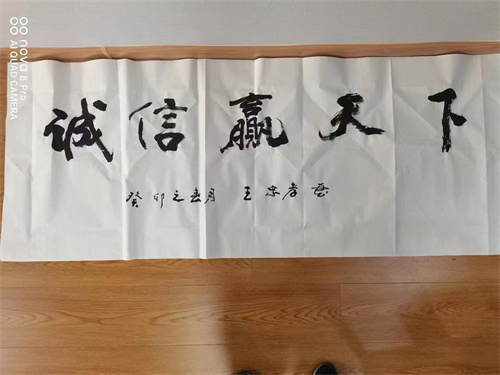 诚信赢天下
癸卯之春月 王忠孝书
nova 8 Pro
AI QUAD CAMERA